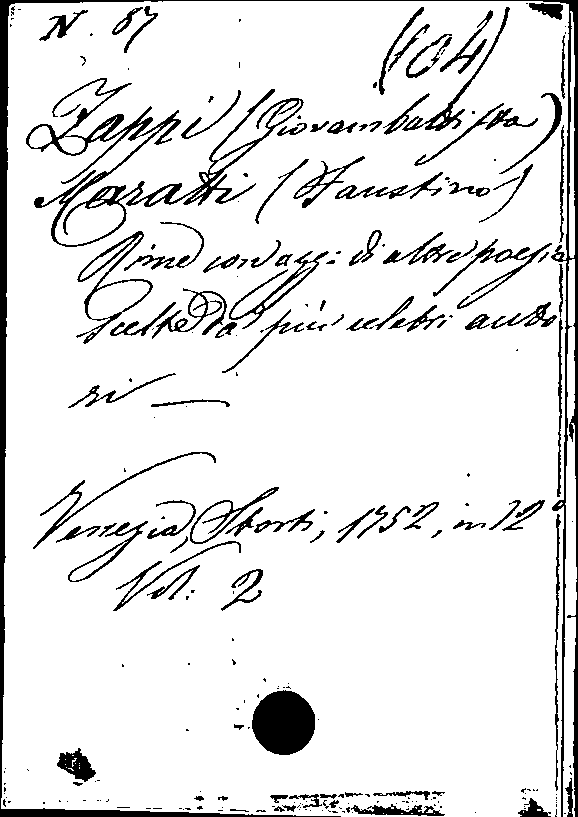 N. 87
(104)
Zappi (Giovambattista)
Maratti (Faustino)
Rime con agg: di altre poesie
scelte da' più celebri auto
ri —
Venezia, Storti, 1752, in 12°
Vol: 2